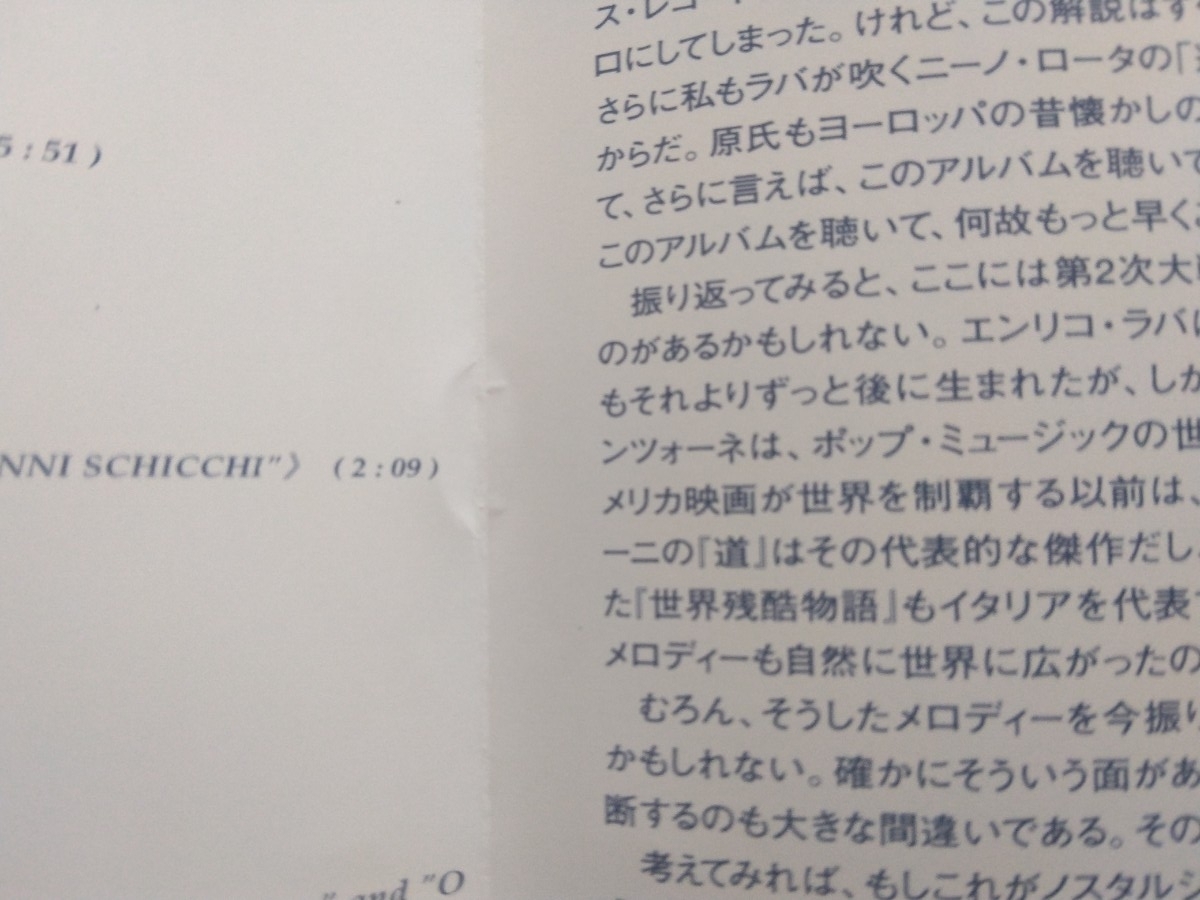 5 : 51 )
NNI SCHICCHI"》 ( 2 : 09 )
" and "O
ス・レコー
口にしてしまった。けれど、この解説はす
さらに私もラバが吹くニーノ・ロータの「
からだ。原氏もヨーロッパの昔懐かしの
て、さらに言えば、このアルバムを聴いて
このアルバムを聴いて、何故もっと早く
振り返ってみると、ここには第2次大
のがあるかもしれない。エンリコ・ラバ
もそれよりずっと後に生まれたが、しか
ンツォーネは、ポップ・ミュージックの世
メリカ映画が世界を制覇する以前は、
ーニの『道』はその代表的な傑作だし
た『世界残酷物語』もイタリアを代表
メロディーも自然に世界に広がったの
むろん、そうしたメロディーを今振り
かもしれない。確かにそういう面があ
断するのも大きな間違いである。その
考えてみれば、もしこれがノスタルジ